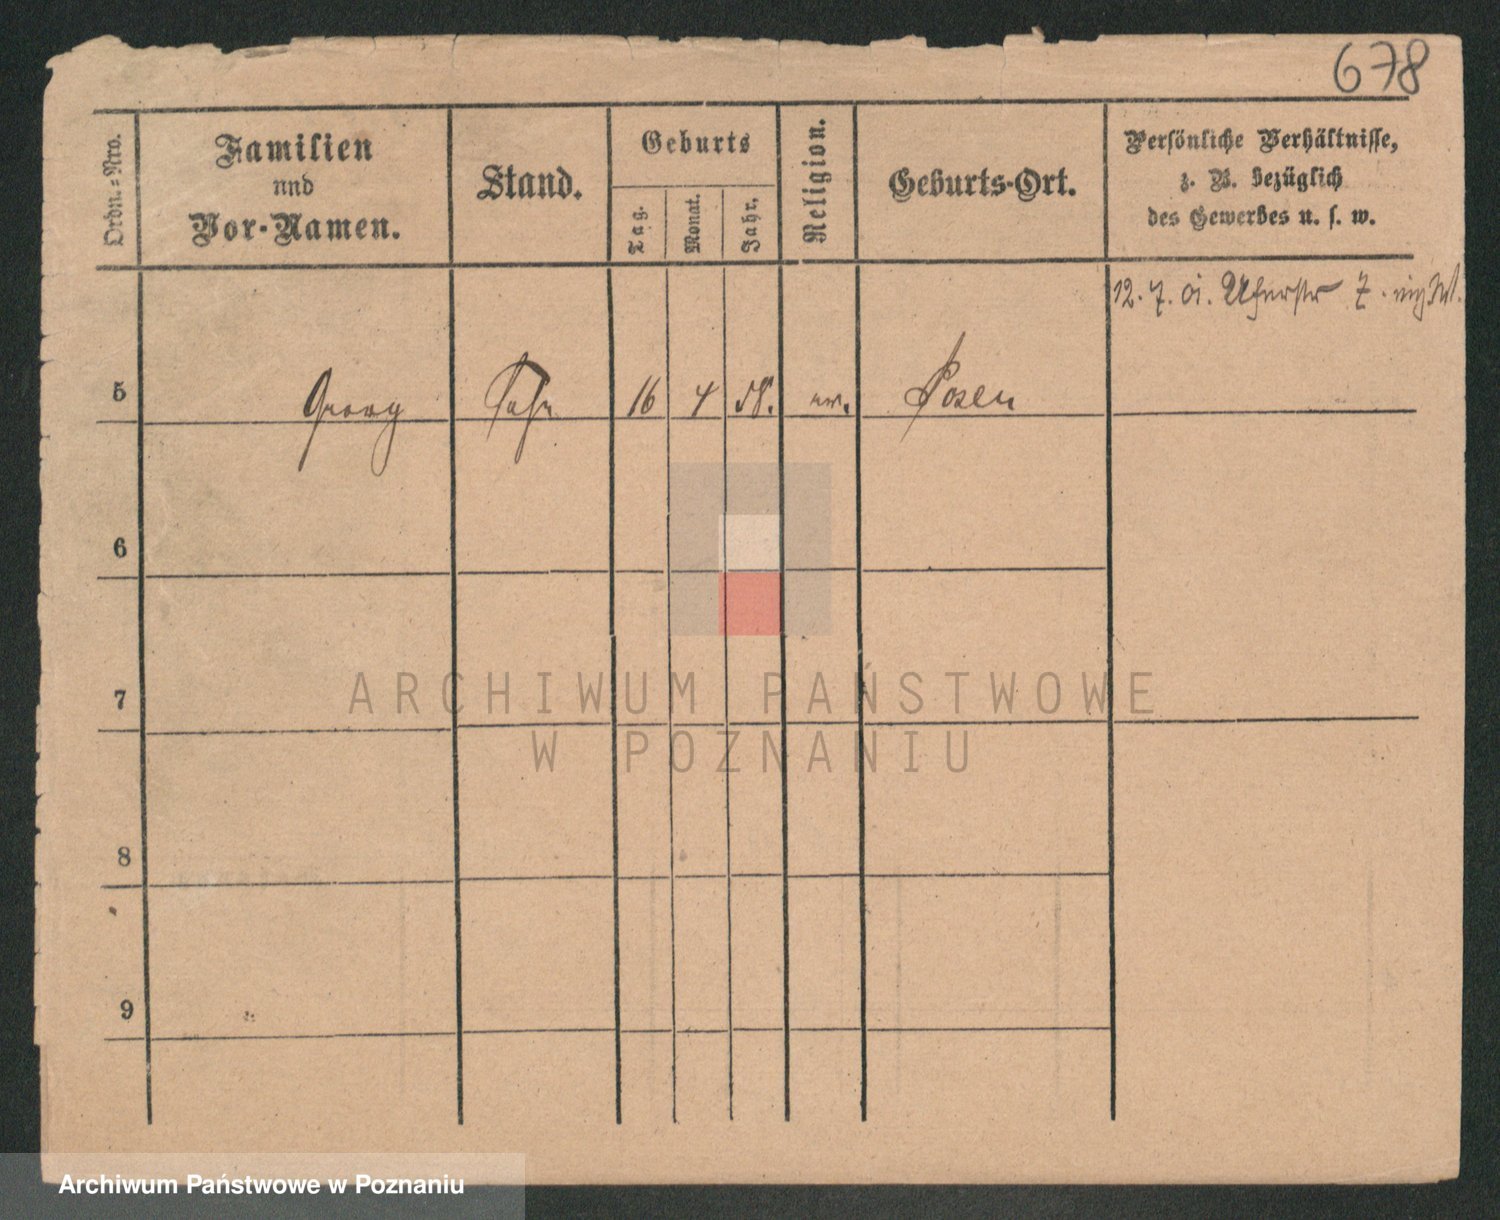 678
Ordn.=Nro.
Familien
nnd
Vor-Namen.
Stand.
Geburts
Tag.
Monat.
Jahr.
Religion.
Geburts-Ort.
Persönliche Verhältnisse,
z. B. bezüglich
des Gewerbes u. s. w.
12. 7. 01. Uferstr 7.
5 Georg Sohn 16 4 58. ev. Posen
6
7
8
9
ARCHIWUM PAŃSTWOWE
W POZNANIU
Archiwum Państwowe w Poznaniu